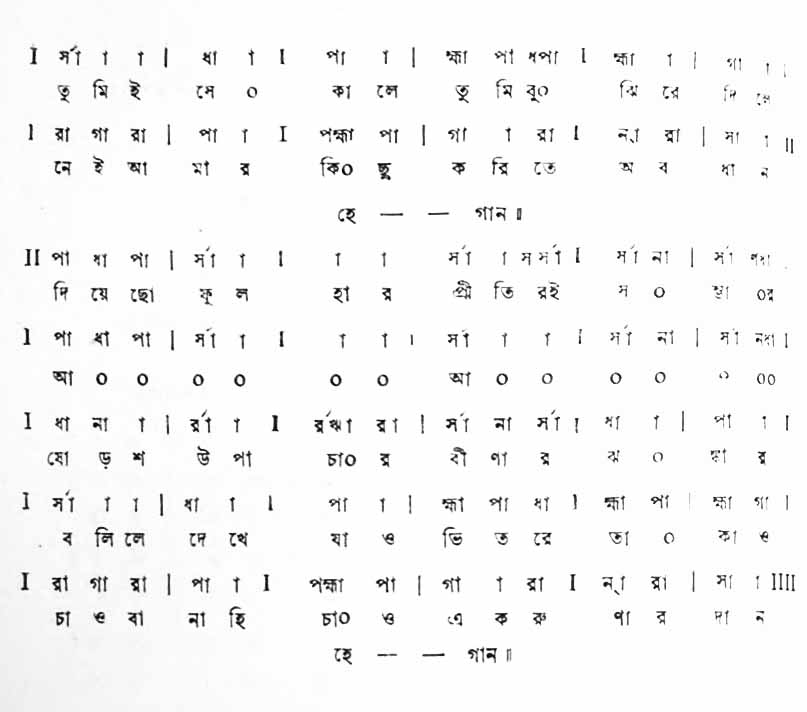 I র্সা া া | ধা া I পা া | হ্মা পা ধপা I হ্মা া | গা া I
তু মি ই সে ০ কা লে তু মি বু০ ঝি রে দি লে
I রা গা রা | পা া I পহ্মা পা | গা া রা I ন্‌া রা | সা া II
নে ই আ মা র কি০ ছু ক রি তে অ ব ধা ন
হে — — গান ॥
II পা ধা পা | র্সা া I া া র্সা া র্সর্সা I র্সা না | র্সা নধা
দি য়ে ছো ফু ল হা র প্রী তি রই স ০ ম্ভা ০র
I পা ধা পা | র্সা া I া া I র্সা া া I র্সা না | র্সা নধা I
আ ০ ০ ০ ০ ০ ০ আ ০ ০ ০ ০ ০ ০০
I ধা না া | র্রা া I র্রর্ঋা রা | র্সা না র্সা I ধা া | পা া I
ষো ড় শ উ পা চা০ র বী ণা র ঝ ০ ঙ্কা র
I র্সা া া | ধা া I পা া | হ্মা পা ধা I হ্মা পা | হ্মা গা I
ব লি লে দে খে যা ও ভি ত রে তা ০ কা ও
I রা গা রা | পা া I পহ্মা পা | গা া রা I ন্‌া রা | সা া IIII
চা ও বা না হি চা০ ও এ ক রু ণা র দা ন
হে — — গান ॥